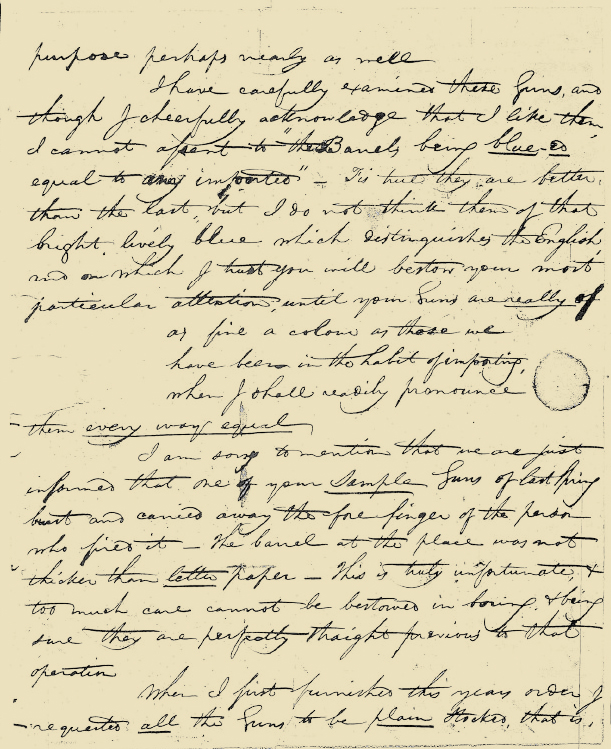 purpose perhaps nearly as well
I have carefully examined these Guns, and
though I cheerfully acknowledge that I like them
I cannot assent to "the Barrels being blue-ed
equal to any imported" – Tis true they are better
than the last, but I do not think them of that
bright, lively blue which distinguishes the English,
and on which I trust you will bestow your most
particular attention, until your Guns are really of
as fine a colour as those we
have been in the habit of importing,
when I shall readily pronounce
them every way equal
I am sorry to mention that we are just
informed that one of your Sample Guns of last Spring
burst and carried away the fore finger of the person
who fired it – The barrel at the place was not
thicker than letter paper – This is truly unfortunate, &
too much care cannot be bestowed in boring, & being
sure they are perfectly straight previous to that
operation
When I first furnished this years order I
requested all the Guns to be plain Stocked, that is,